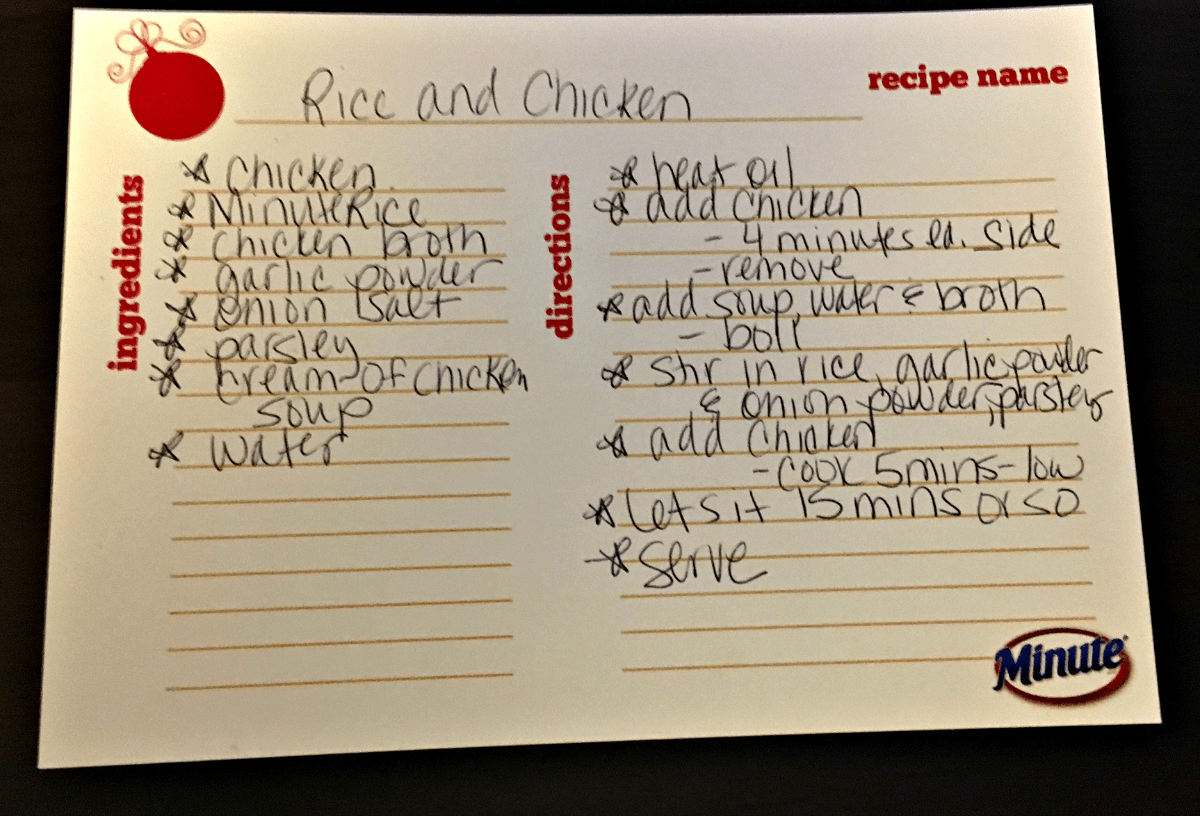 recipe name
Rice and Chicken
ingredients
* Chicken
* Minute Rice
* chicken broth
* garlic powder
* onion salt
* parsley
* cream-of chicken
soup
* water
directions
* heat oil
* add chicken
- 4 minutes ea. side
- remove
* add soup, water & broth
- boil
* Stir in rice, garlic powder
& onion powder, parsley
* add Chicken
- cook 5 mins - low
* Let sit 15 mins or so
* Serve
Minute